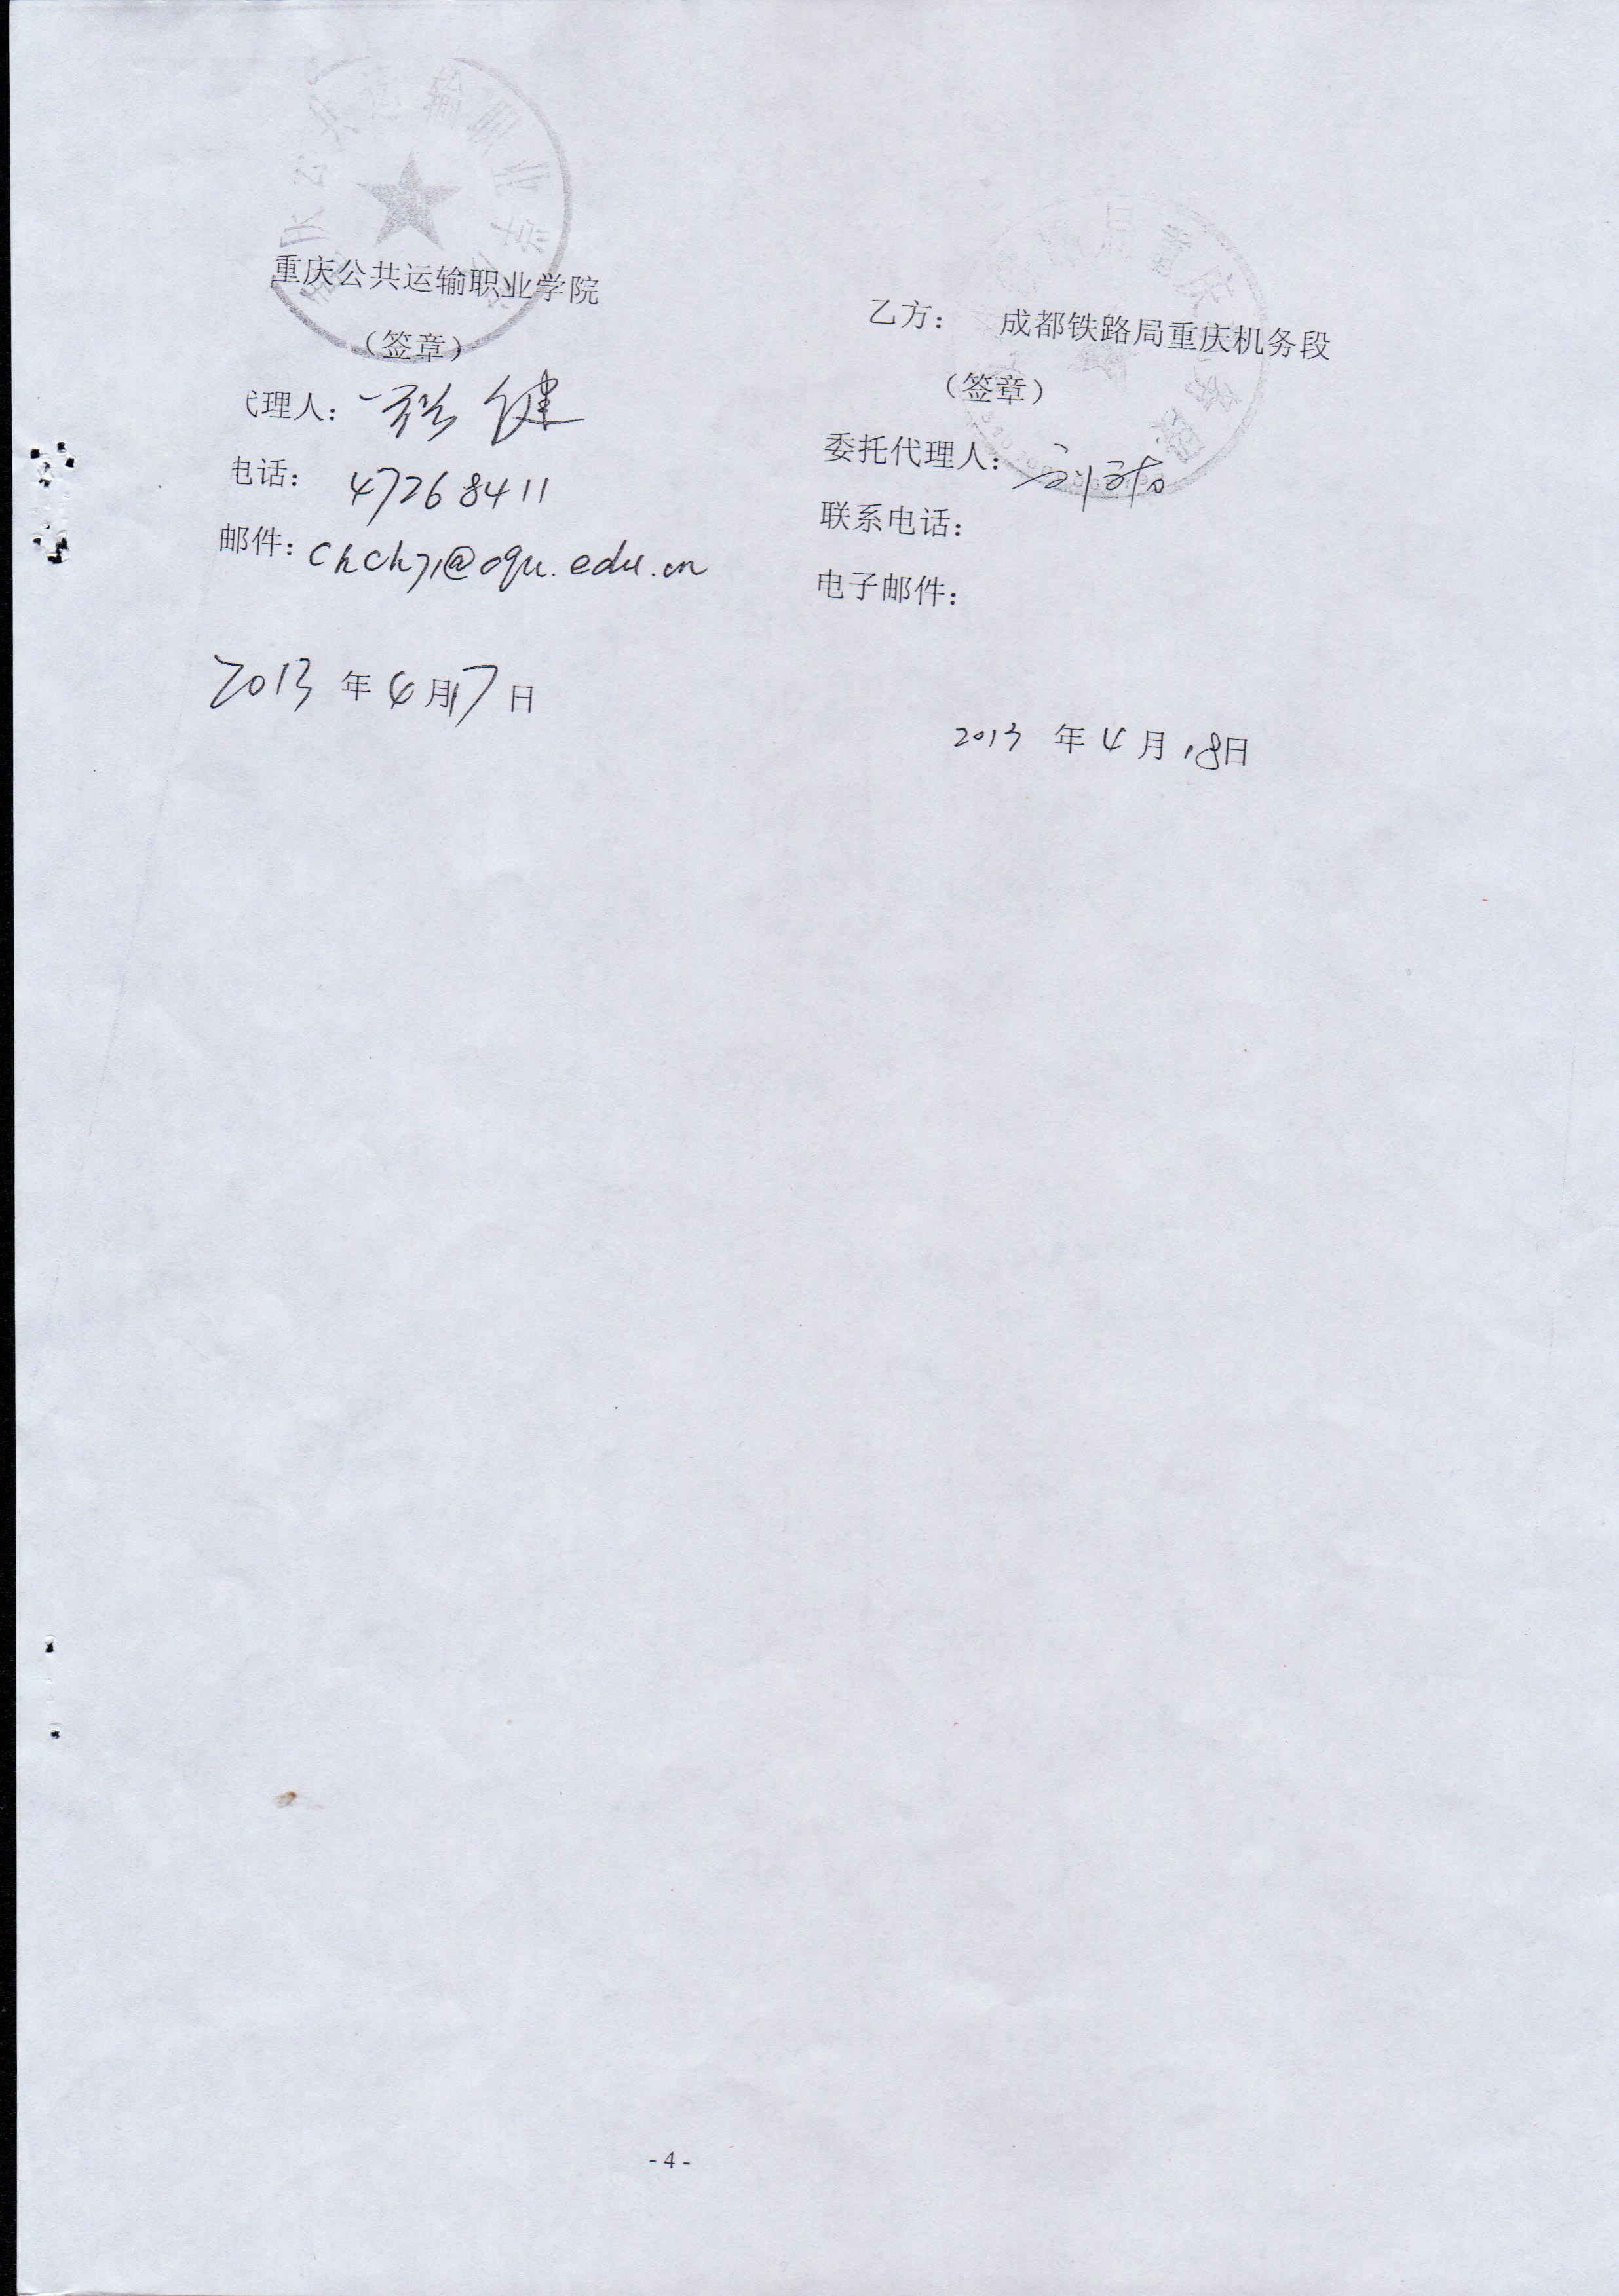 重庆公共运输职业学院
（签章）
代理人：
电话： 47268411
邮件：
2013 年 4 月 17 日
乙方： 成都铁路局重庆机务段
（签章）
委托代理人：
联系电话：
电子邮件：
2013 年 4 月 18日
- 4 -